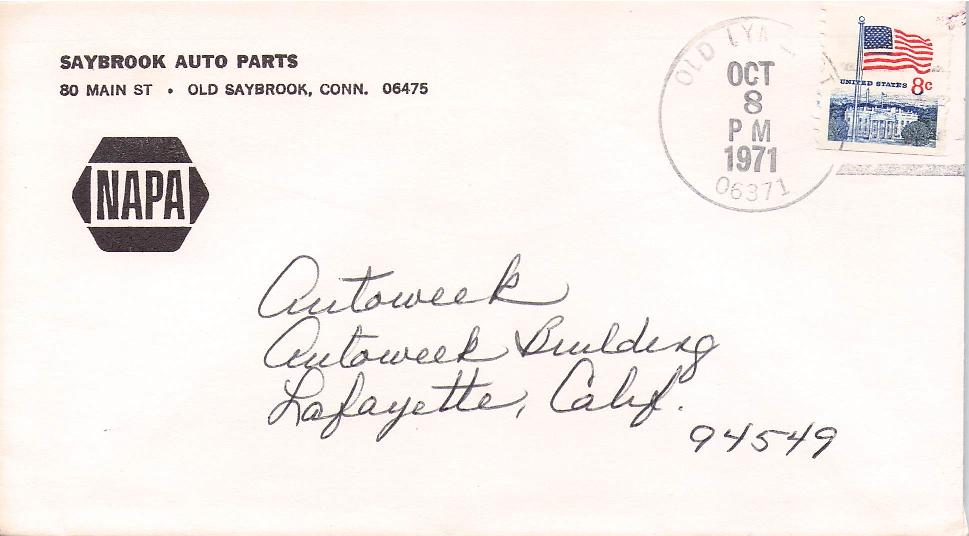 SAYBROOK AUTO PARTS
80 MAIN ST • OLD SAYBROOK, CONN. 06475
NAPA
OLD LYM
OCT
8
PM
1971
06371
UNITED STATES 8c
Autoweek
Autoweek Building
Lafayette, Calif.
94549